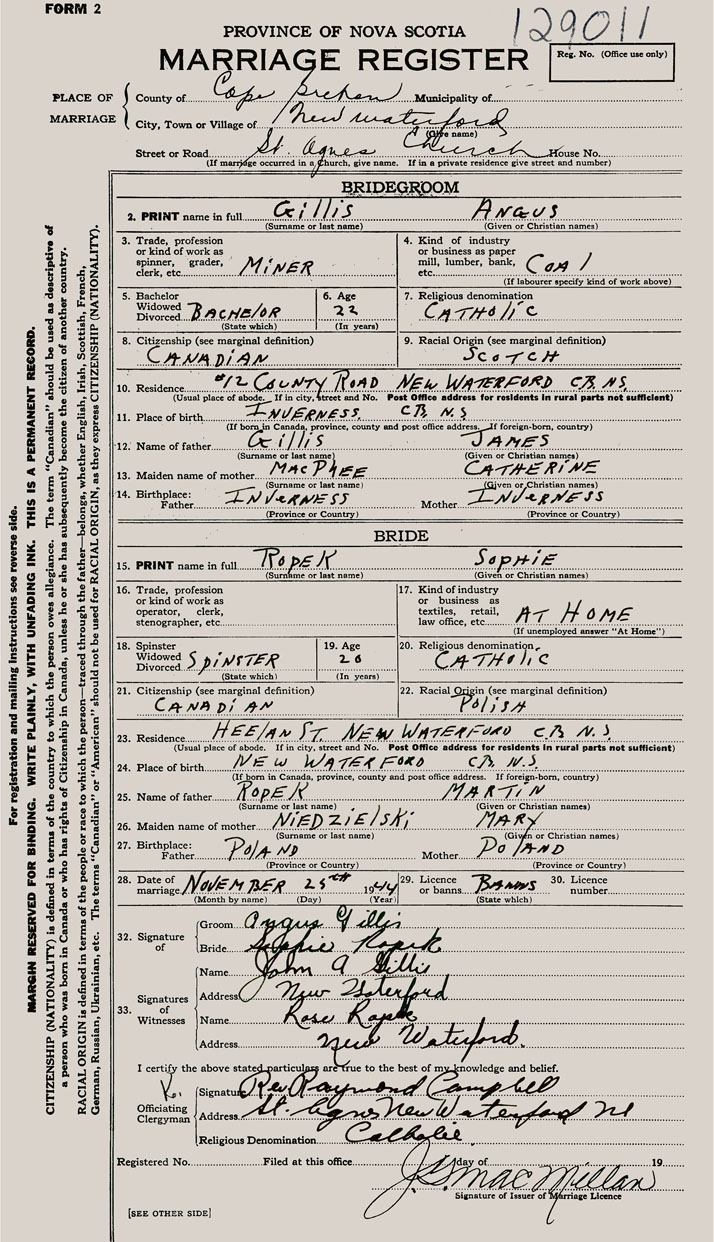 FORM 2
129011
PROVINCE OF NOVA SCOTIA
MARRIAGE REGISTER
Reg. No. (Office use only)
PLACE OF MARRIAGE
County of Cape Breton Municipality of
City, Town or Village of New Waterford
(Give name)
Street or Road St. Agnes Church House No.
(If marriage occurred in a church, give name. If in a private residence give street and number)
BRIDEGROOM
2. PRINT name in full Gillis Angus
(Surname or last name) (Given or Christian names)
3. Trade, profession or kind of work as spinner, grader, clerk, etc. MINER
4. Kind of industry or business as paper mill, lumber, bank, etc. COAl
(If labourer specify kind of work above)
5. Bachelor Widowed Divorced BACHElOR
(State which)
6. Age 22
(In years)
7. Religious denomination CATHOliC
8. Citizenship (see marginal definition) CANADIAN
9. Racial Origin (see marginal definition) SCOTCH
10. Residence #12 COUNTY ROAD NEW WATERFORD C.B. N.S.
(Usual place of abode. If in city, street and No. Post Office address for residents in rural parts not sufficient)
11. Place of birth INVERNESS C.B. N.S
(If born in Canada, province, county and post office address. If foreign-born, country)
12. Name of father Gillis JAMES
(Surname or last name) (Given or Christian names)
13. Maiden name of mother MACPHEE CATHERINE
(Surname or last name) (Given or Christian names)
14. Birthplace: Father INVERNESS Mother INVERNESS
(Province or Country) (Province or Country)
BRIDE
15. PRINT name in full ROPEK SOPHIE
(Surname or last name) (Given or Christian names)
16. Trade, profession or kind of work as operator, clerk, stenographer, etc.
17. Kind of industry or business as textiles, retail, law office, etc. AT HOME
(If unemployed answer "At Home")
18. Spinster Widowed Divorced SPINSTER
(State which)
19. Age 20
(In years)
20. Religious denomination CATHOliC
21. Citizenship (see marginal definition) CANADIAN
22. Racial Origin (see marginal definition) POLISH
23. Residence HEELAN ST. NEW WATERFORD C.B. N.S.
(Usual place of abode. If in city, street and No. Post Office address for residents in rural parts not sufficient)
24. Place of birth NEW WATERFORD C.B. N.S.
(If born in Canada, province, county and post office address. If foreign-born, country)
25. Name of father ROPEK MARTIN
(Surname or last name) (Given or Christian names)
26. Maiden name of mother NIEDZIElSKi MARY
(Surname or last name) (Given or Christian names)
27. Birthplace: Father POLAND Mother POLAND
(Province or Country) (Province or Country)
28. Date of marriage NOVEMBER 25th 1944
(Month by name) (Day) (Year)
29. Licence or banns BANNS
(State which)
30. Licence number
32. Signature of
Groom Angus Gillis
Bride Sophie Ropek
33. Signatures of Witnesses
Name John A Gillis
Address New Waterford
Name Rose Ropek
Address New Waterford.
I certify the above stated particulars are true to the best of my knowledge and belief.
Officiating Clergyman
Signature Rev Raymond Campbell
Address St. Agnes New Waterford NS
Religious Denomination Catholic
Registered No. Filed at this office day of 19
J. S. MacMillan
Signature of Issuer of Marriage Licence
[SEE OTHER SIDE]
For registration and mailing instructions see reverse side.
MARGIN RESERVED FOR BINDING. WRITE PLAINLY, WITH UNFADING INK. THIS IS A PERMANENT RECORD.
CITIZENSHIP (NATIONALITY) is defined in terms of the country to which the person owes allegiance. The term "Canadian" should be used as descriptive of
a person who was born in Canada or who has rights of Citizenship in Canada, unless he or she has subsequently become the citizen of another country.
RACIAL ORIGIN is defined in terms of the people or race to which the person—traced through the father—belongs, whether English, Irish, Scottish, French,
German, Russian, Ukrainian, etc. The terms "Canadian" or "American" should not be used for RACIAL ORIGIN, as they express CITIZENSHIP (NATIONALITY).